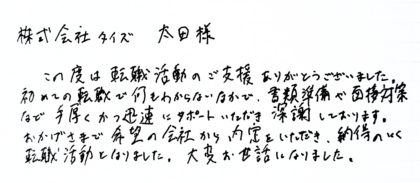 株式会社タイズ 太田様
この度は転職活動のご支援ありがとうございました。
初めての転職で何もわからないなかで、書類準備や面接対策
など手厚くかつ迅速にサポートいただき深謝しております。
おかげさまで希望の会社から内定をいただき、納得のいく
転職活動となりました。大変お世話になりました。